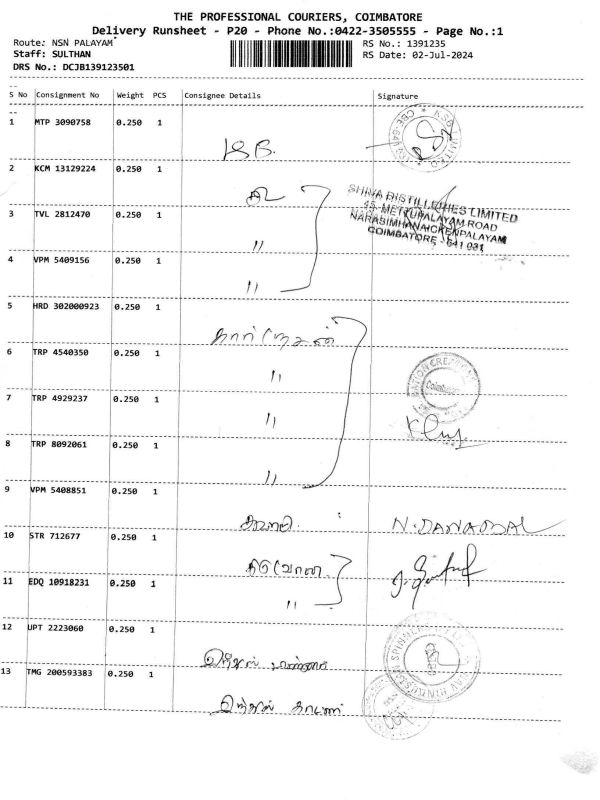 THE PROFESSIONAL COURIERS, COIMBATORE
Delivery Runsheet - P20 - Phone No.:0422-3505555 - Page No.:1
Route: NSN PALAYAM
RS No.: 1391235
Staff: SULTHAN
RS Date: 02-Jul-2024
DRS No.: DCJB139123501
S No Consignment No Weight PCS Consignee Details Signature
1 MTP 3090758 0.250 1
KSB.
2 KCM 13129224 0.250 1
SHIVA DISTILLERIES LIMITED
45, METTUPALAYAM ROAD
NARASIMHANAICKENPALAYAM
COIMBATORE - 641 031
3 TVL 2812470 0.250 1
"
4 VPM 5409156 0.250 1
"
5 HRD 302000923 0.250 1
6 TRP 4540350 0.250 1
"
Coimbatore
7 TRP 4929237 0.250 1
"
8 TRP 8092061 0.250 1
"
9 VPM 5408851 0.250 1
N. DANABAL
10 STR 712677 0.250 1
11 EDQ 10918231 0.250 1
"
12 UPT 2223060 0.250 1
13 TMG 200593383 0.250 1